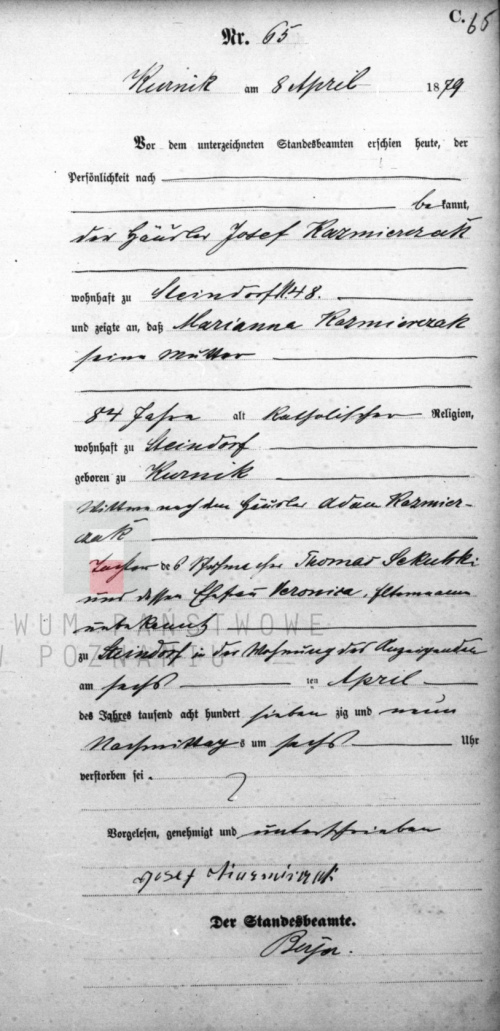 C.
65
Nr. 65
Kurnik am 8 April 1879
Vor dem unterzeichneten Standesbeamten erschien heute, der
Persönlichkeit nach
bekannt,
der Häusler Josef Kazmierczak
wohnhaft zu Steindorf N. 48.
und zeigte an, daß Marianna Kazmierczak
seine Mutter
84 Jahre alt katholischer Religion,
wohnhaft zu Steindorf
geboren zu Kurnik
Wittwe nach dem Häusler Adam Kazmier-
czak
Tochter des Thomas
und dessen Ehefrau Veronica,
unbekannt
zu Steindorf in der Wohnung des Anzeigenden
am sechs ten April
des Jahres tausend acht hundert siebenzig und neun
Nachmittags um sechs Uhr
verstorben sei.
Vorgelesen, genehmigt und unterschrieben
Josef Kazmierczak
Der Standesbeamte.
WUM PAŃSTWOWE
W POZNANIU